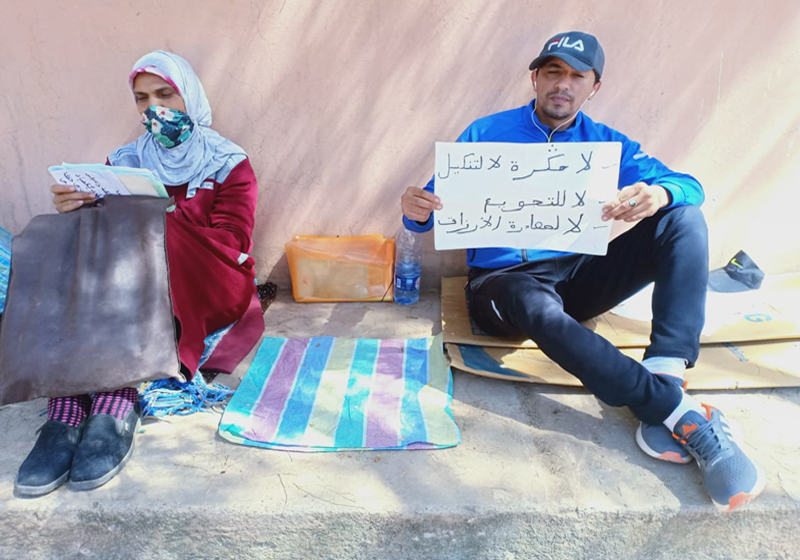 FILA
- لا حكرة لا لتنكيل
- لا للتجويع
- لا لمصادرة الارزاق